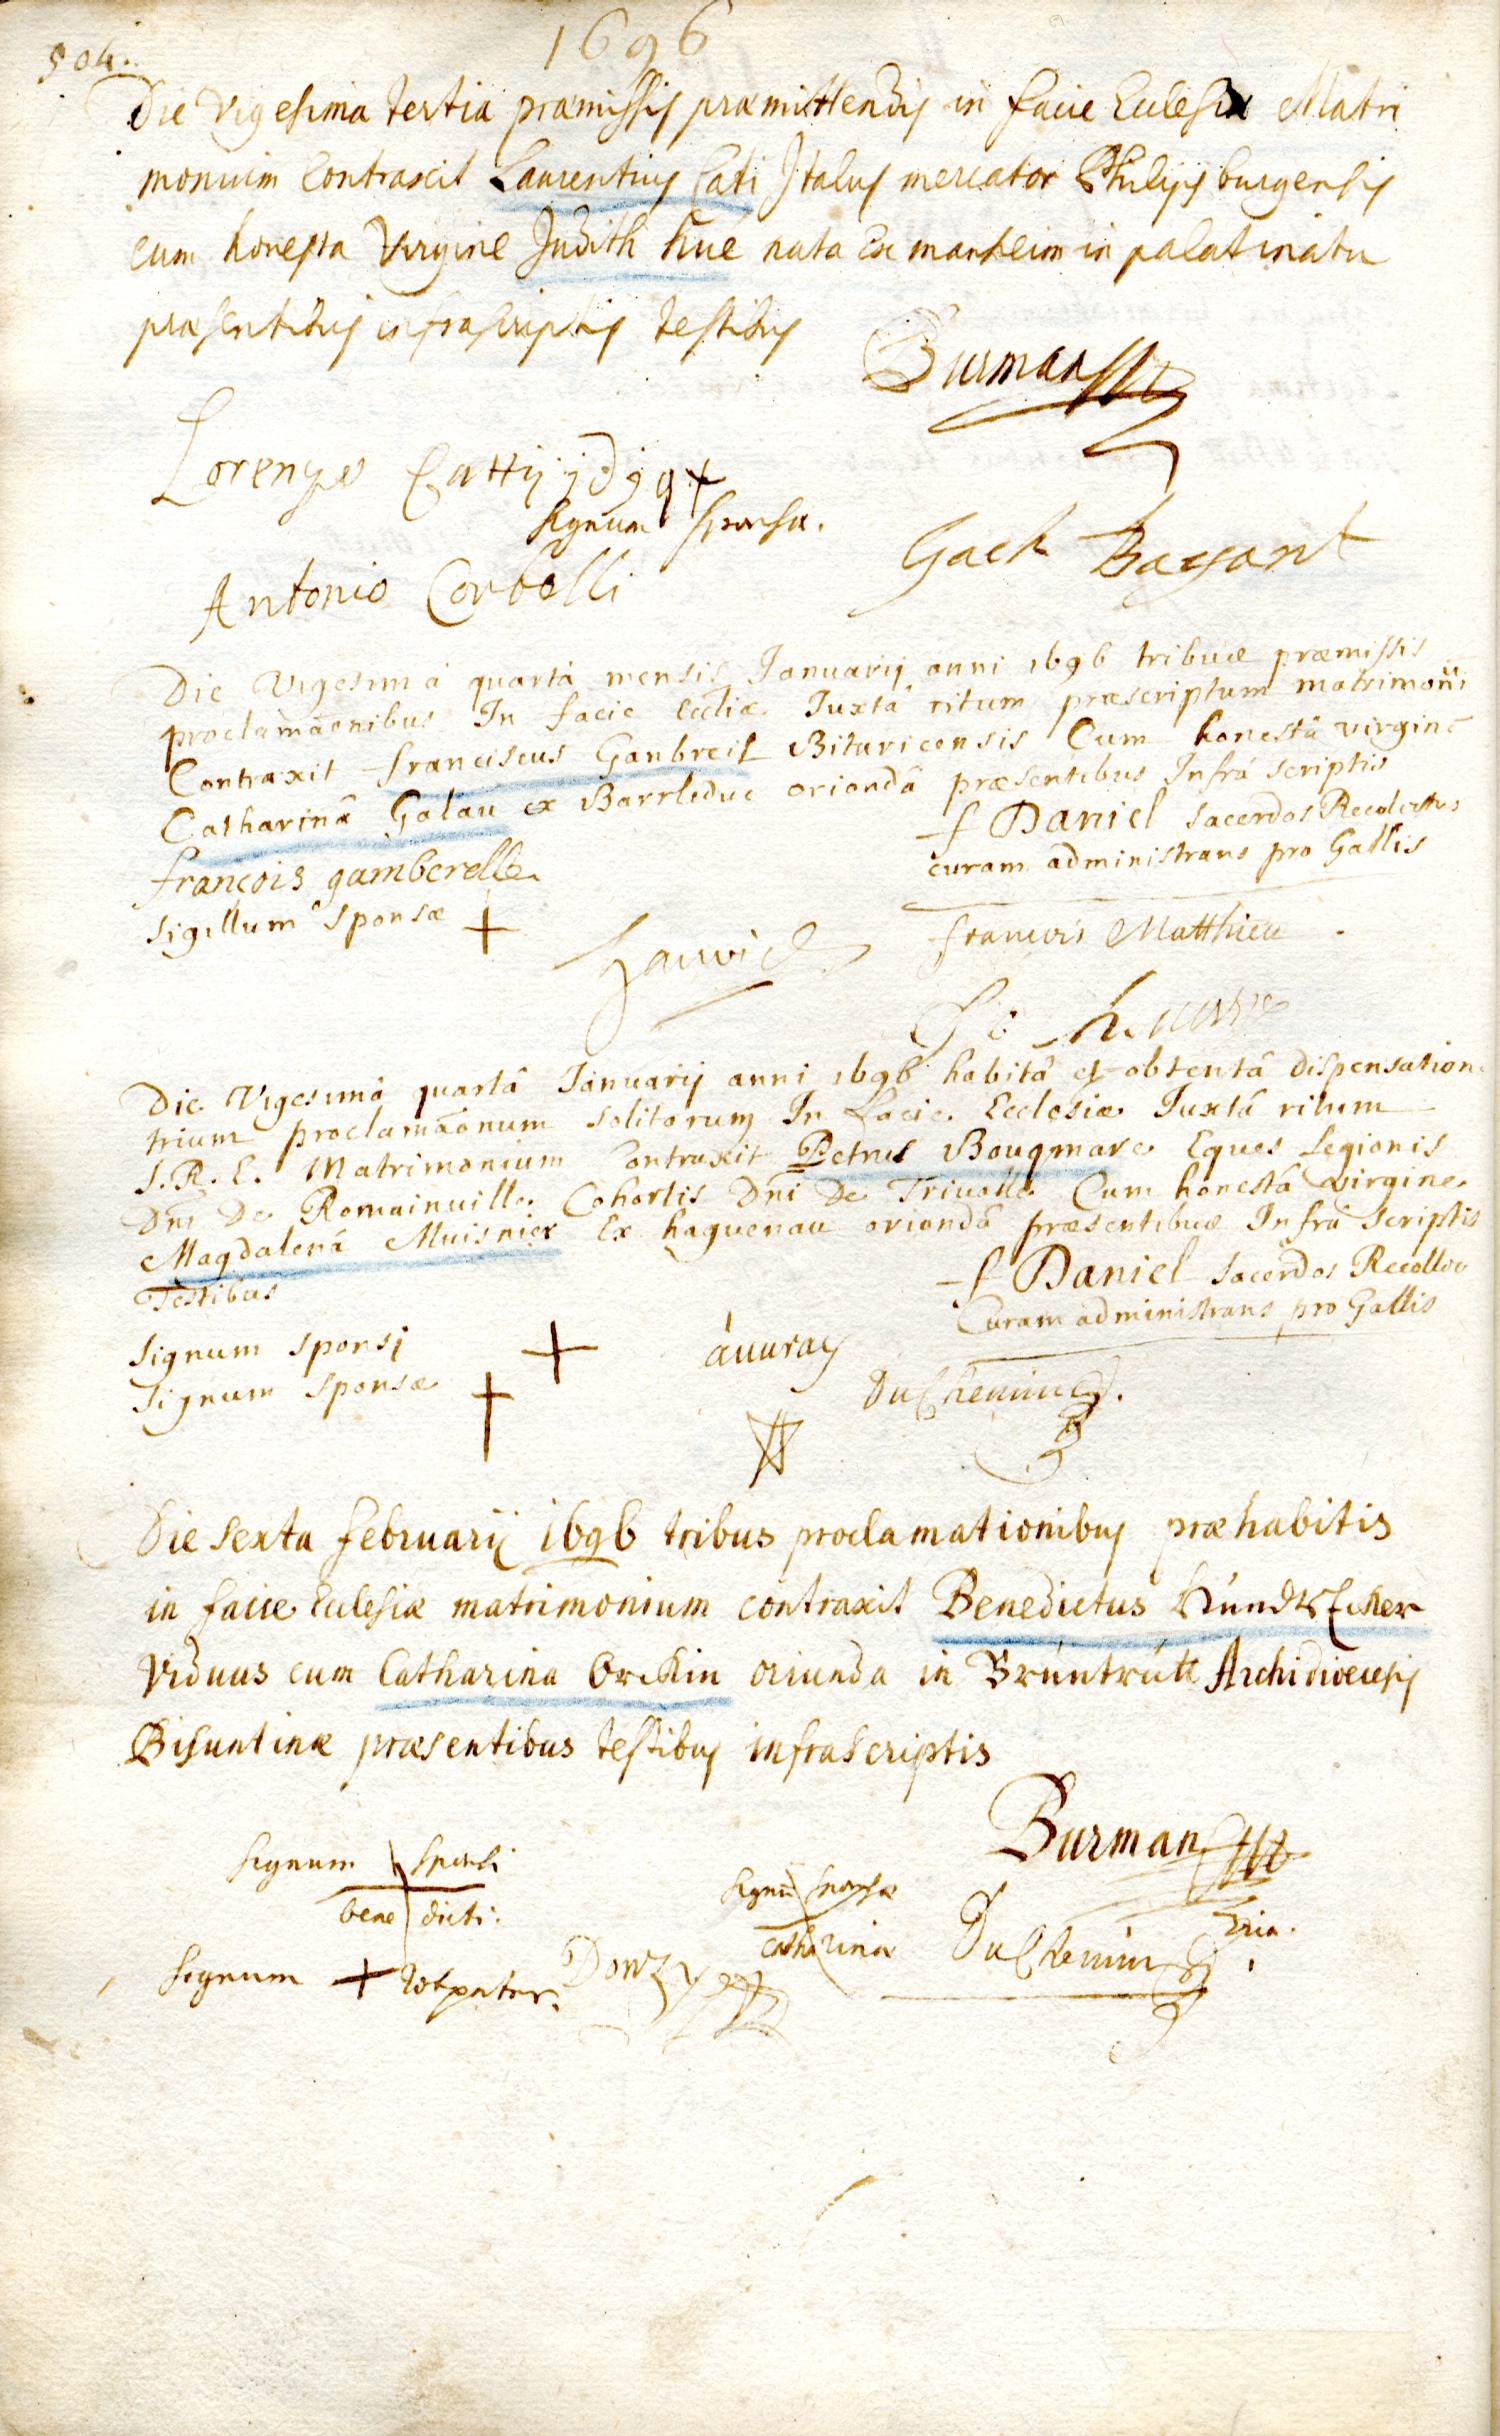 1696
504.
Die Vigesima tertia præmissis præmittendis in facie Eclesiæ Matri
monium Contraxit Laurentius Cati Italus mercator Philipsburgensis
cum honesta Virgine Judith hue nata Ex manheim in palatinatu
præsentibus infrascriptis testibus
Burman
Lorenzo Cattij
signum sponsæ.
Antonio Corbelli
Die Vigesimâ quartâ mensis Januarij anni 1696 tribus præmissis
proclamãonibus In facie Eccliæ Juxtâ ritum præscriptum matrimonii
Contraxit franciscus Ganbreil Bituricensis Cum honestâ virginē
Catharinâ Galau ex Barrleduc oriondâ præsentibus Infrà scriptis
f Daniel sacerdos Recolectus
curam administrans pro Gallis
françois gamberelle
sigillum sponsæ +
francois Matthieu
Die Vigesimâ quartâ Januarij anni 1696 habitâ et obtentâ Dispensatione
trium proclamãonum solitorum In facie Ecclesiæ Juxtâ ritum
S. R. E. Matrimonium Contraxit Petrus Bouqmare Eques Legionis
Dni De Romainville Cohortis Dni De Trivolle Cum honestâ virgine
Magdalenâ Muisnier Ex haguenau oriondâ præsentibus Infrà scriptis
Testibus
f Daniel sacerdos Recollec
Curam administrans pro Gallis
Signum sponsi +
áuuray
Signum sponsæ +
DuChemin
Die sexta februarij 1696 tribus proclamationibus præhabitis
in facie Eclesiæ matrimonium contraxit Benedictus Húndts Ecker
Viduus cum Catharina Orckin oriunda in Brúntrútt Archidiocesis
Bisuntinæ præsentibus testibus infrascriptis
Burman
signum sponsi
bene dicti.
signū sponsæ
catharina
DuChemin
signum +
Donzy